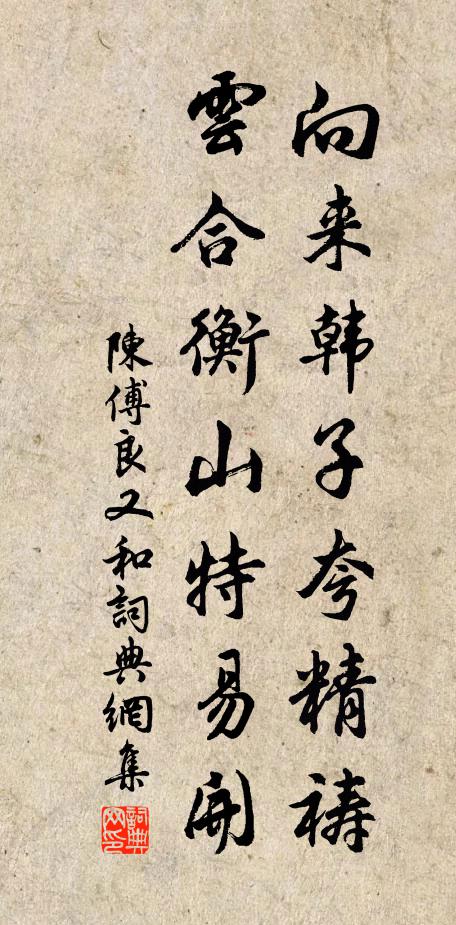 向来韩子夸精祷
雲合衡山特易開
陳傅良又和詞典網集
詞典网印